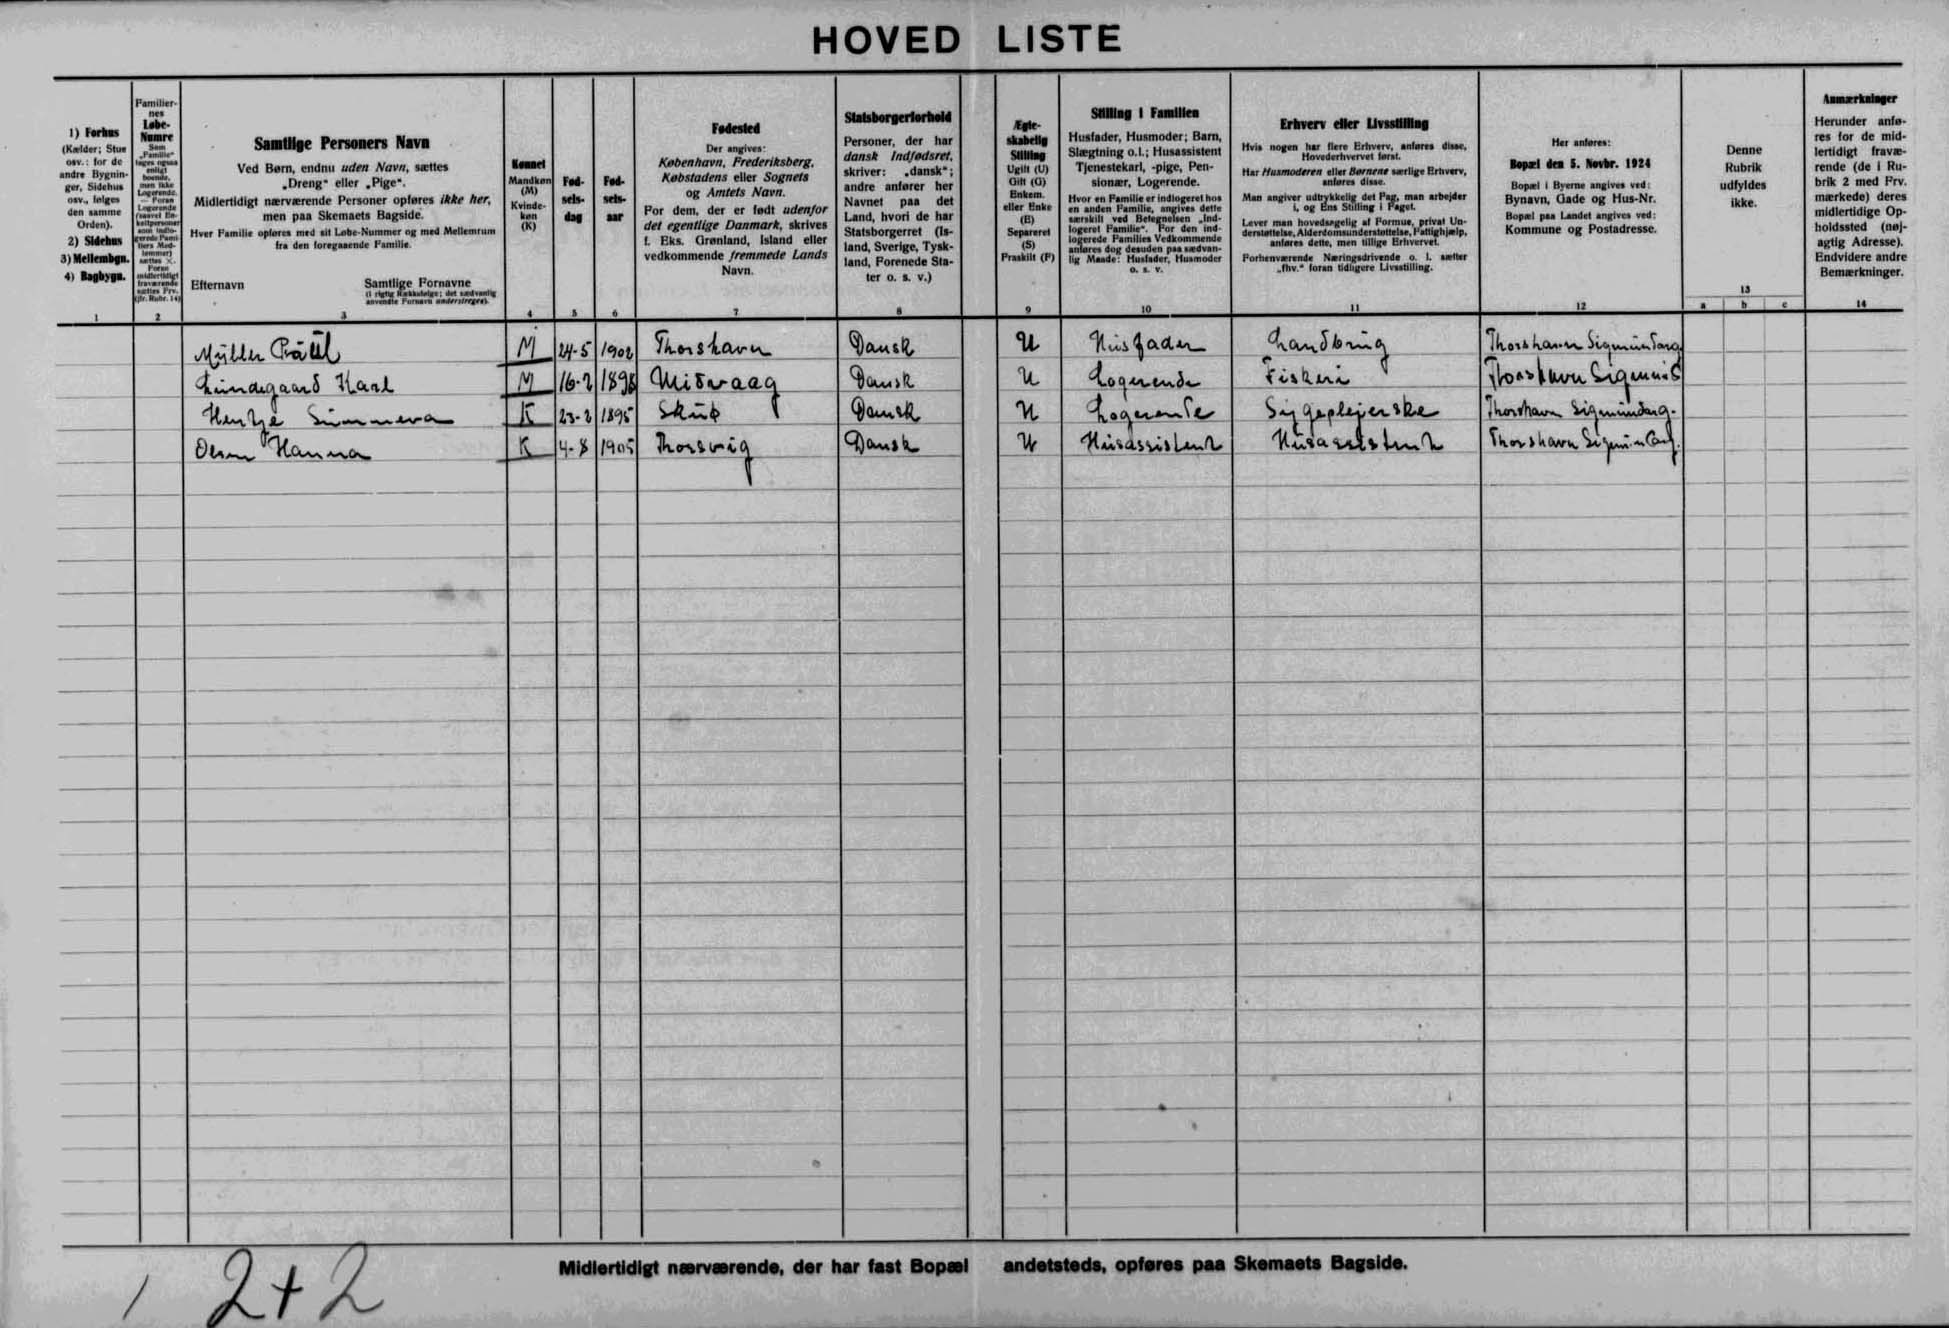 HOVED LISTE
1) Forhus
(Kælder; Stue
osv.: for de
andre Bygnin-
ger, Sidehus
osv., følges
den samme
Orden).
2) Sidehus
3) Mellembgn.
4) Bagbygn.
1
Familier-
nes
Løbe-
Numre
Som
„Familie“
tages ogsaa
enligt
boende,
men ikke
Logerende.
— Foran
Logerende
(saavel En-
keltpersoner
som indlo-
gerede Fami-
liers Med-
lemmer)
sættes ×.
Foran
midlertidigt
fraværende
sættes Frv.
(jfr. Rubr. 14)
2
Samtlige Personers Navn
Ved Børn, endnu uden Navn, sættes
„Dreng“ eller „Pige“.
Midlertidigt nærværende Personer opføres ikke her,
men paa Skemaets Bagside.
Hver Familie opføres med sit Løbe-Nummer og med Mellemrum
fra den foregaaende Familie.
Efternavn
Samtlige Fornavne
(i rigtig Rækkefølge; det sædvanlig
anvendte Fornavn understreges).
3
Kønnet
Mandkøn
(M)
Kvinde-
køn
(K)
4
Fød-
sels-
dag
5
Fød-
sels-
aar
6
Fødested
Der angives:
København, Frederiksberg,
Købstadens eller Sognets
og Amtets Navn.
For dem, der er født udenfor
det egentlige Danmark, skrives
f. Eks. Grønland, Island eller
vedkommende fremmede Lands
Navn.
7
Statsborgerforhold
Personer, der har
dansk Indfødsret,
skriver: „dansk“;
andre anfører her
Navnet paa det
Land, hvori de har
Statsborgerret (Is-
land, Sverige, Tysk-
land, Forenede Sta-
ter o. s. v.)
8
Ægte-
skabelig
Stilling
Ugift (U)
Gift (G)
Enkem.
eller Enke
(E)
Separeret
(S)
Fraskilt (F)
9
Stilling i Familien
Husfader, Husmoder; Barn,
Slægtning o.l.; Husassistent
Tjenestekarl, -pige, Pen-
sionær, Logerende.
Hvor en Familie er indlogeret hos
en anden Familie, angives dette
særskilt ved Betegnelsen „Ind-
logeret Familie“. For den ind-
logerede Families Vedkommende
anføres dog desuden paa sædvan-
lig Maade: Husfader, Husmoder
o. s. v.
10
Erhverv eller Livsstilling
Hvis nogen har flere Erhverv, anføres disse,
Hovederhvervet først.
Har Husmoderen eller Børnene særlige Erhverv,
anføres disse.
Man angiver udtrykkelig det Fag, man arbejder
i, og Ens Stilling i Faget.
Lever man hovedsagelig af Formue, privat Un-
derstøttelse, Alderdomsunderstøttelse, Fattighjælp,
anføres dette, men tillige Erhvervet.
Forhenværende Næringsdrivende o. l. sætter
„fhv.“ foran tidligere Livsstilling.
11
Her anføres:
Bopæl den 5. Novbr. 1924
Bopæl i Byerne angives ved:
Bynavn, Gade og Hus-Nr.
Bopæl paa Landet angives ved:
Kommune og Postadresse.
12
Denne
Rubrik
udfyldes
ikke.
13
a b c
Anmærkninger
Herunder anfø-
res for de mid-
lertidigt fravæ-
rende (de i Ru-
brik 2 med Frv.
mærkede) deres
midlertidige Op-
holdssted (nøj-
agtig Adresse).
Endvidere andre
Bemærkninger.
14
Müller Påul M 24-5 1902 Thorshavn Dansk U Husfader Landbrug Thorshavn Sigmundarg
Lundegaard Karl M 16-2 1898 Midvaag Dansk U Logerende Fiskeri Thorshavn Sigmund
Hentze Sunneva K 23-2 1895 Skúø Dansk U Logerende Sygeplejerske Thorshavn Sigmundarg.
Olsen Hanna K 4-8 1905 Thorsvig Dansk U Husassistent Husassistent Thorshavn
Midlertidigt nærværende, der har fast Bopæl andetsteds, opføres paa Skemaets Bagside.
1 2+2